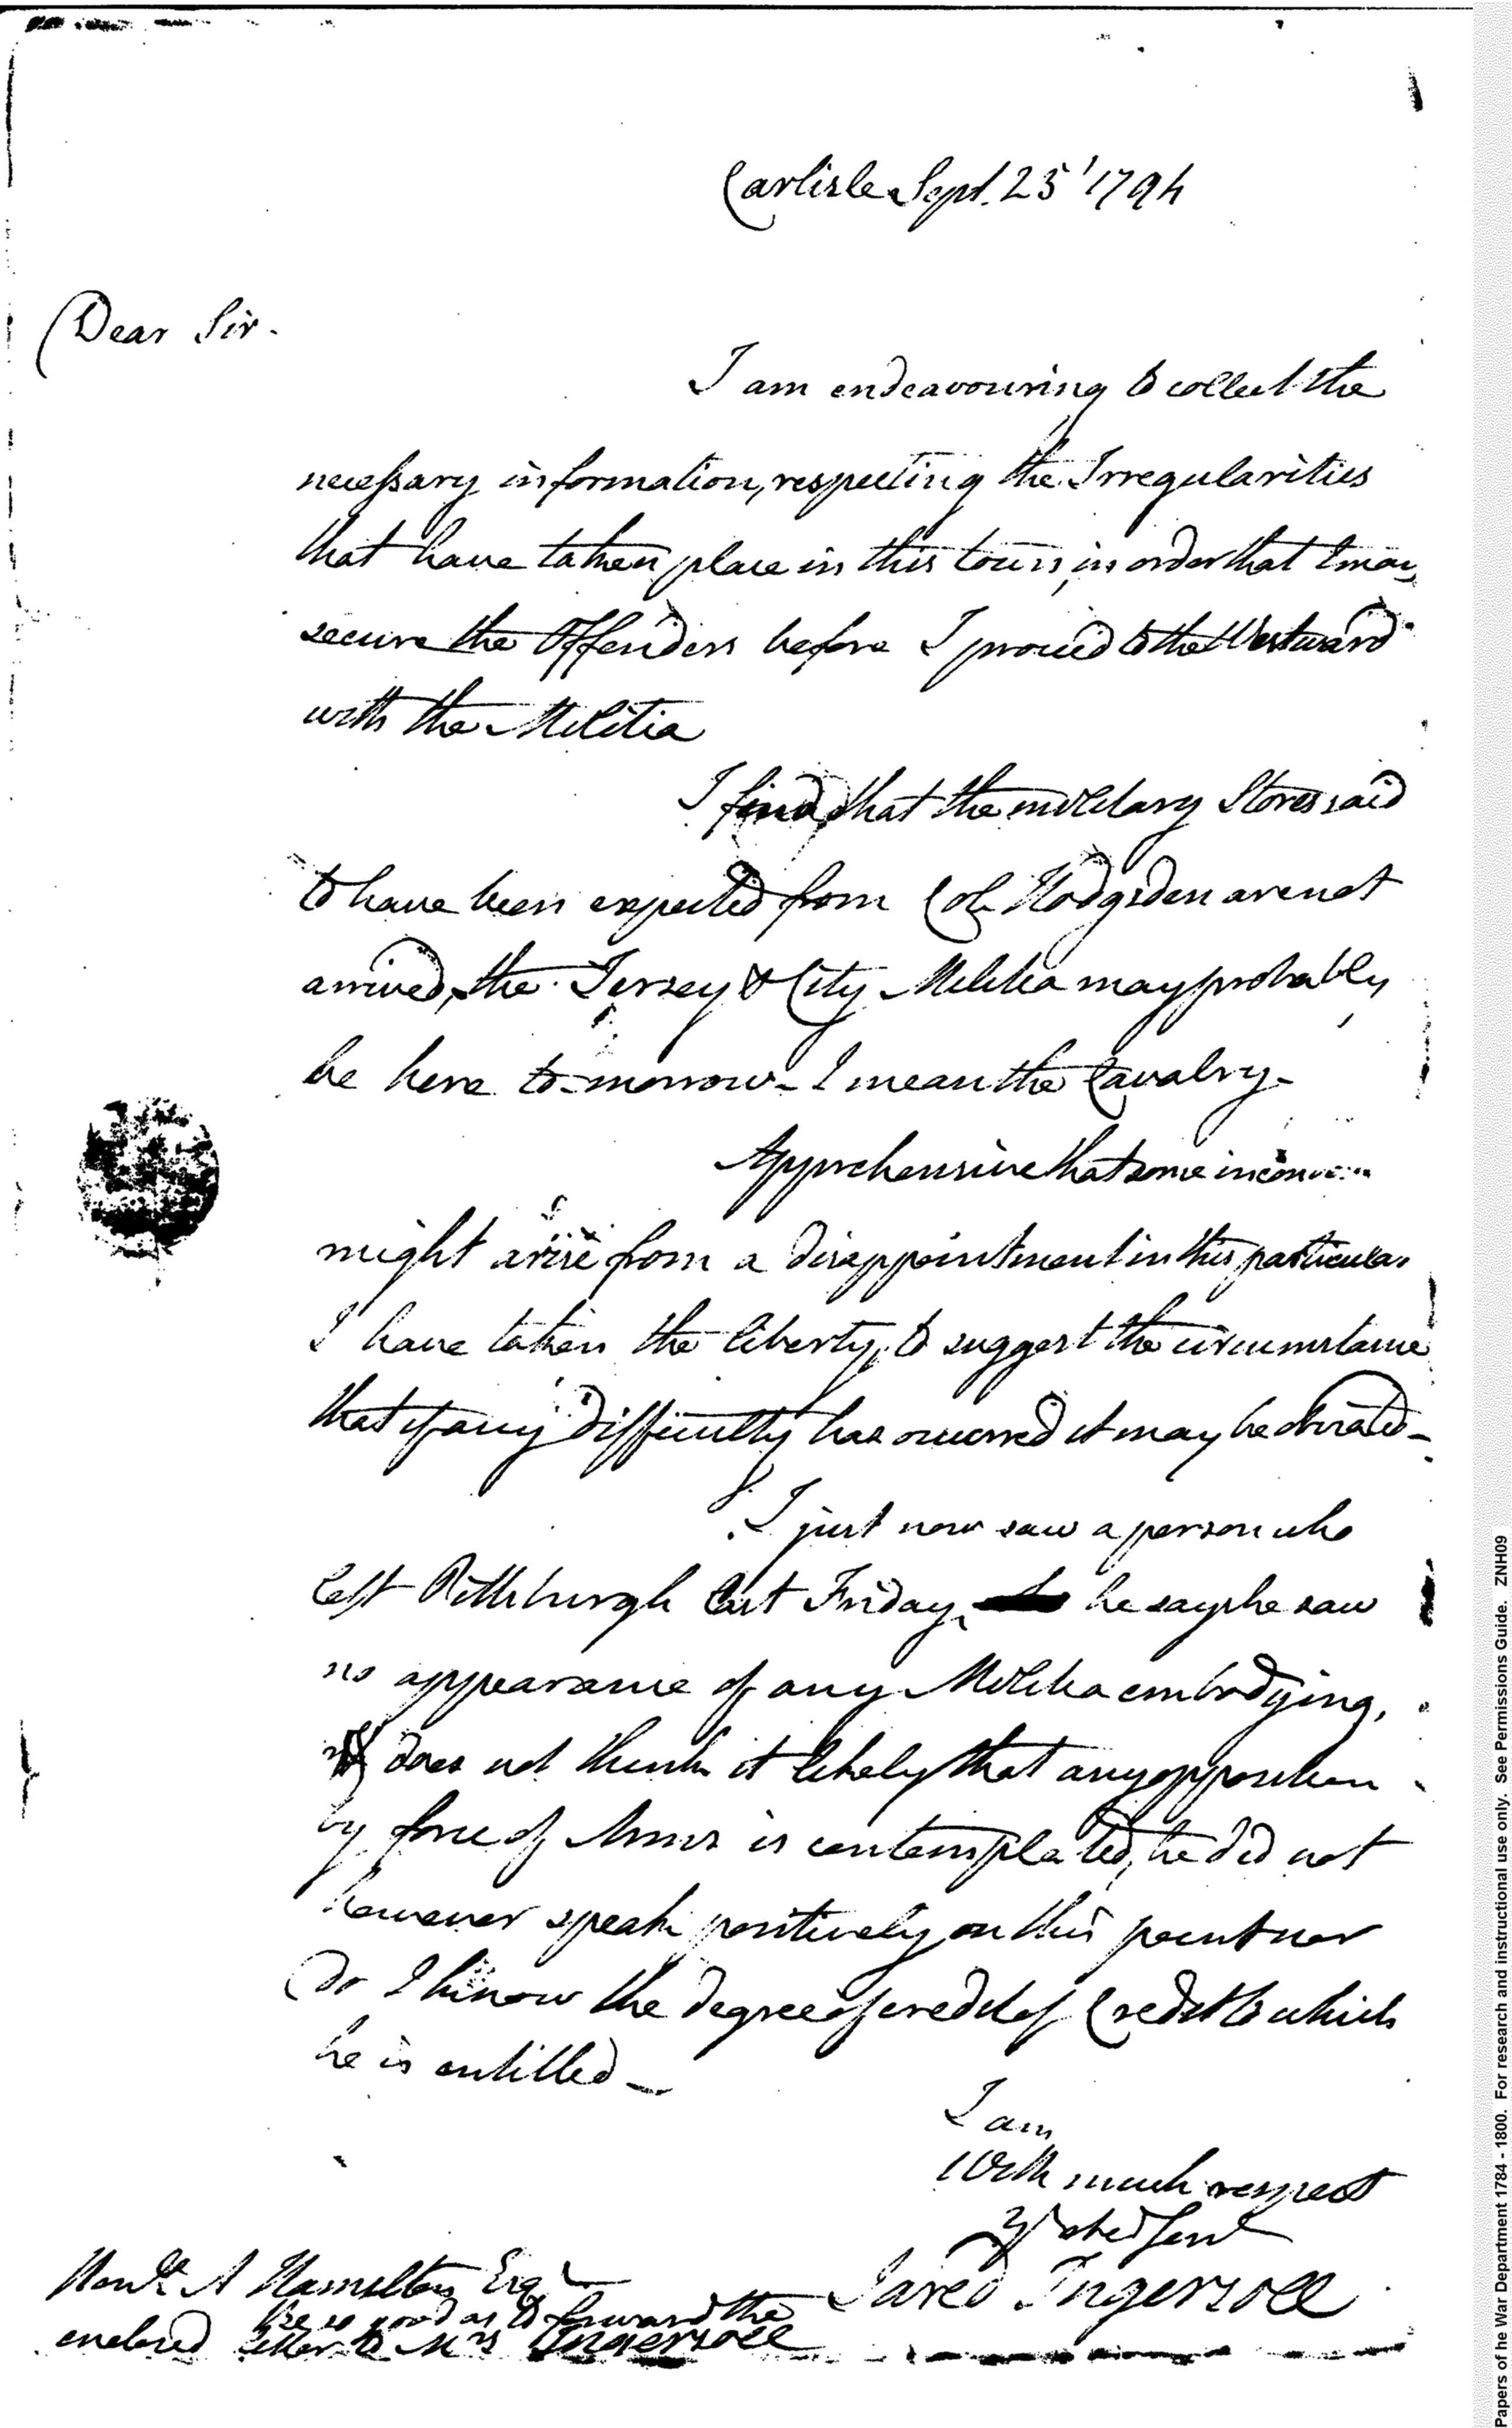 Carlisle Sept. 25' 1794
Dear Sir.
I am endeavouring to collect the
necessary information, respecting the Irregularities
that have taken place in this town, in order that I may
secure the Offenders before I proceed to the Westward
with the Militia
I find, that the military Stores said
to have been expected from Col. Hodgsden are not
arrived, the Jersey & City Militia may probably
be here to-morrow - I mean the Cavalry -
Apprehensive that some
might arise from a disappointment in this particular
I have taken the liberty, to suggest the circumstance
that if any difficulty has occurred it may be obviated -
I just now saw a person who
left Pittsburgh last Friday, he says he saw
no appearance of any Militia embodying,
does not think it likely that any opposition
by force of Arms is contemplated, he did not
however speak positively on this point nor
do I know the degree of credit of Credit to which
he is entitled -
I am
With much respect
Yr obed Servt
Jared Ingersoll
Honble A Hamilton Esqr
Be so good as to forward the
enclosed letter to Mrs Ingersoll
Papers of he War Department 1784 - 1800. For research and instructional use only. See Permissions Guide. ZNH09